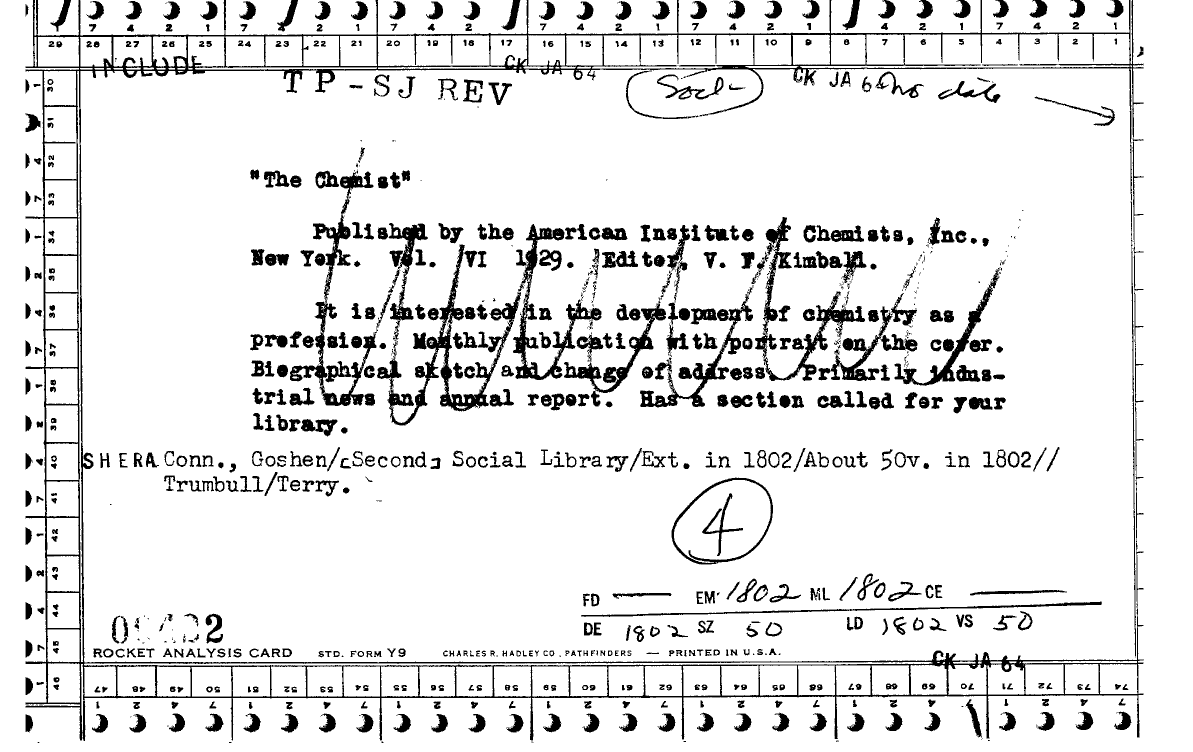 7 4 2 1 7 4 2 1 7 4 2 1 7 4 2 1 7 4 2 1 7 4 2 1
29 28 27 26 25 24 23 22 21 20 19 18 17 16 15 14 13 12 11 10 9 8 7 6 5 4 3 2 1
INCLUDE TP-SJ REV CK JA 64 Socl- CK JA 6 no date
"The Chemist"
Published by the American Institute of Chemists, Inc.,
New York. Vol. VI 1929. Editor, V. F. Kimball.
It is interested in the development of chemistry as a
profession. Monthly publication with portrait on the cover.
Biographical sketch and change of address. Primarily indus-
trial news and annual report. Has a section called for your
library.
SHERA Conn., Goshen/[Second] Social Library/Ext. in 1802/About 50v. in 1802//
Trumbull/Terry.
4
FD — EM 1802 ML 1802 CE —
DE 1802 SZ 50 LD 1802 VS 50
ROCKET ANALYSIS CARD STD. FORM Y9 CHARLES R. HADLEY CO., PATHFINDERS — PRINTED IN U.S.A.
CK JA 64
30
31
32
33
34
35
36
37
38
39
40
41
42
43
44
45
46
47 48 49 50 51 52 53 54 55 56 57 58 59 60 61 62 63 64 65 66 67 68 69 70 71 72 73 74
1 2 4 7 1 2 4 7 1 2 4 7 1 2 4 7 1 2 4 7 1 2 4 7 1 2 4 7